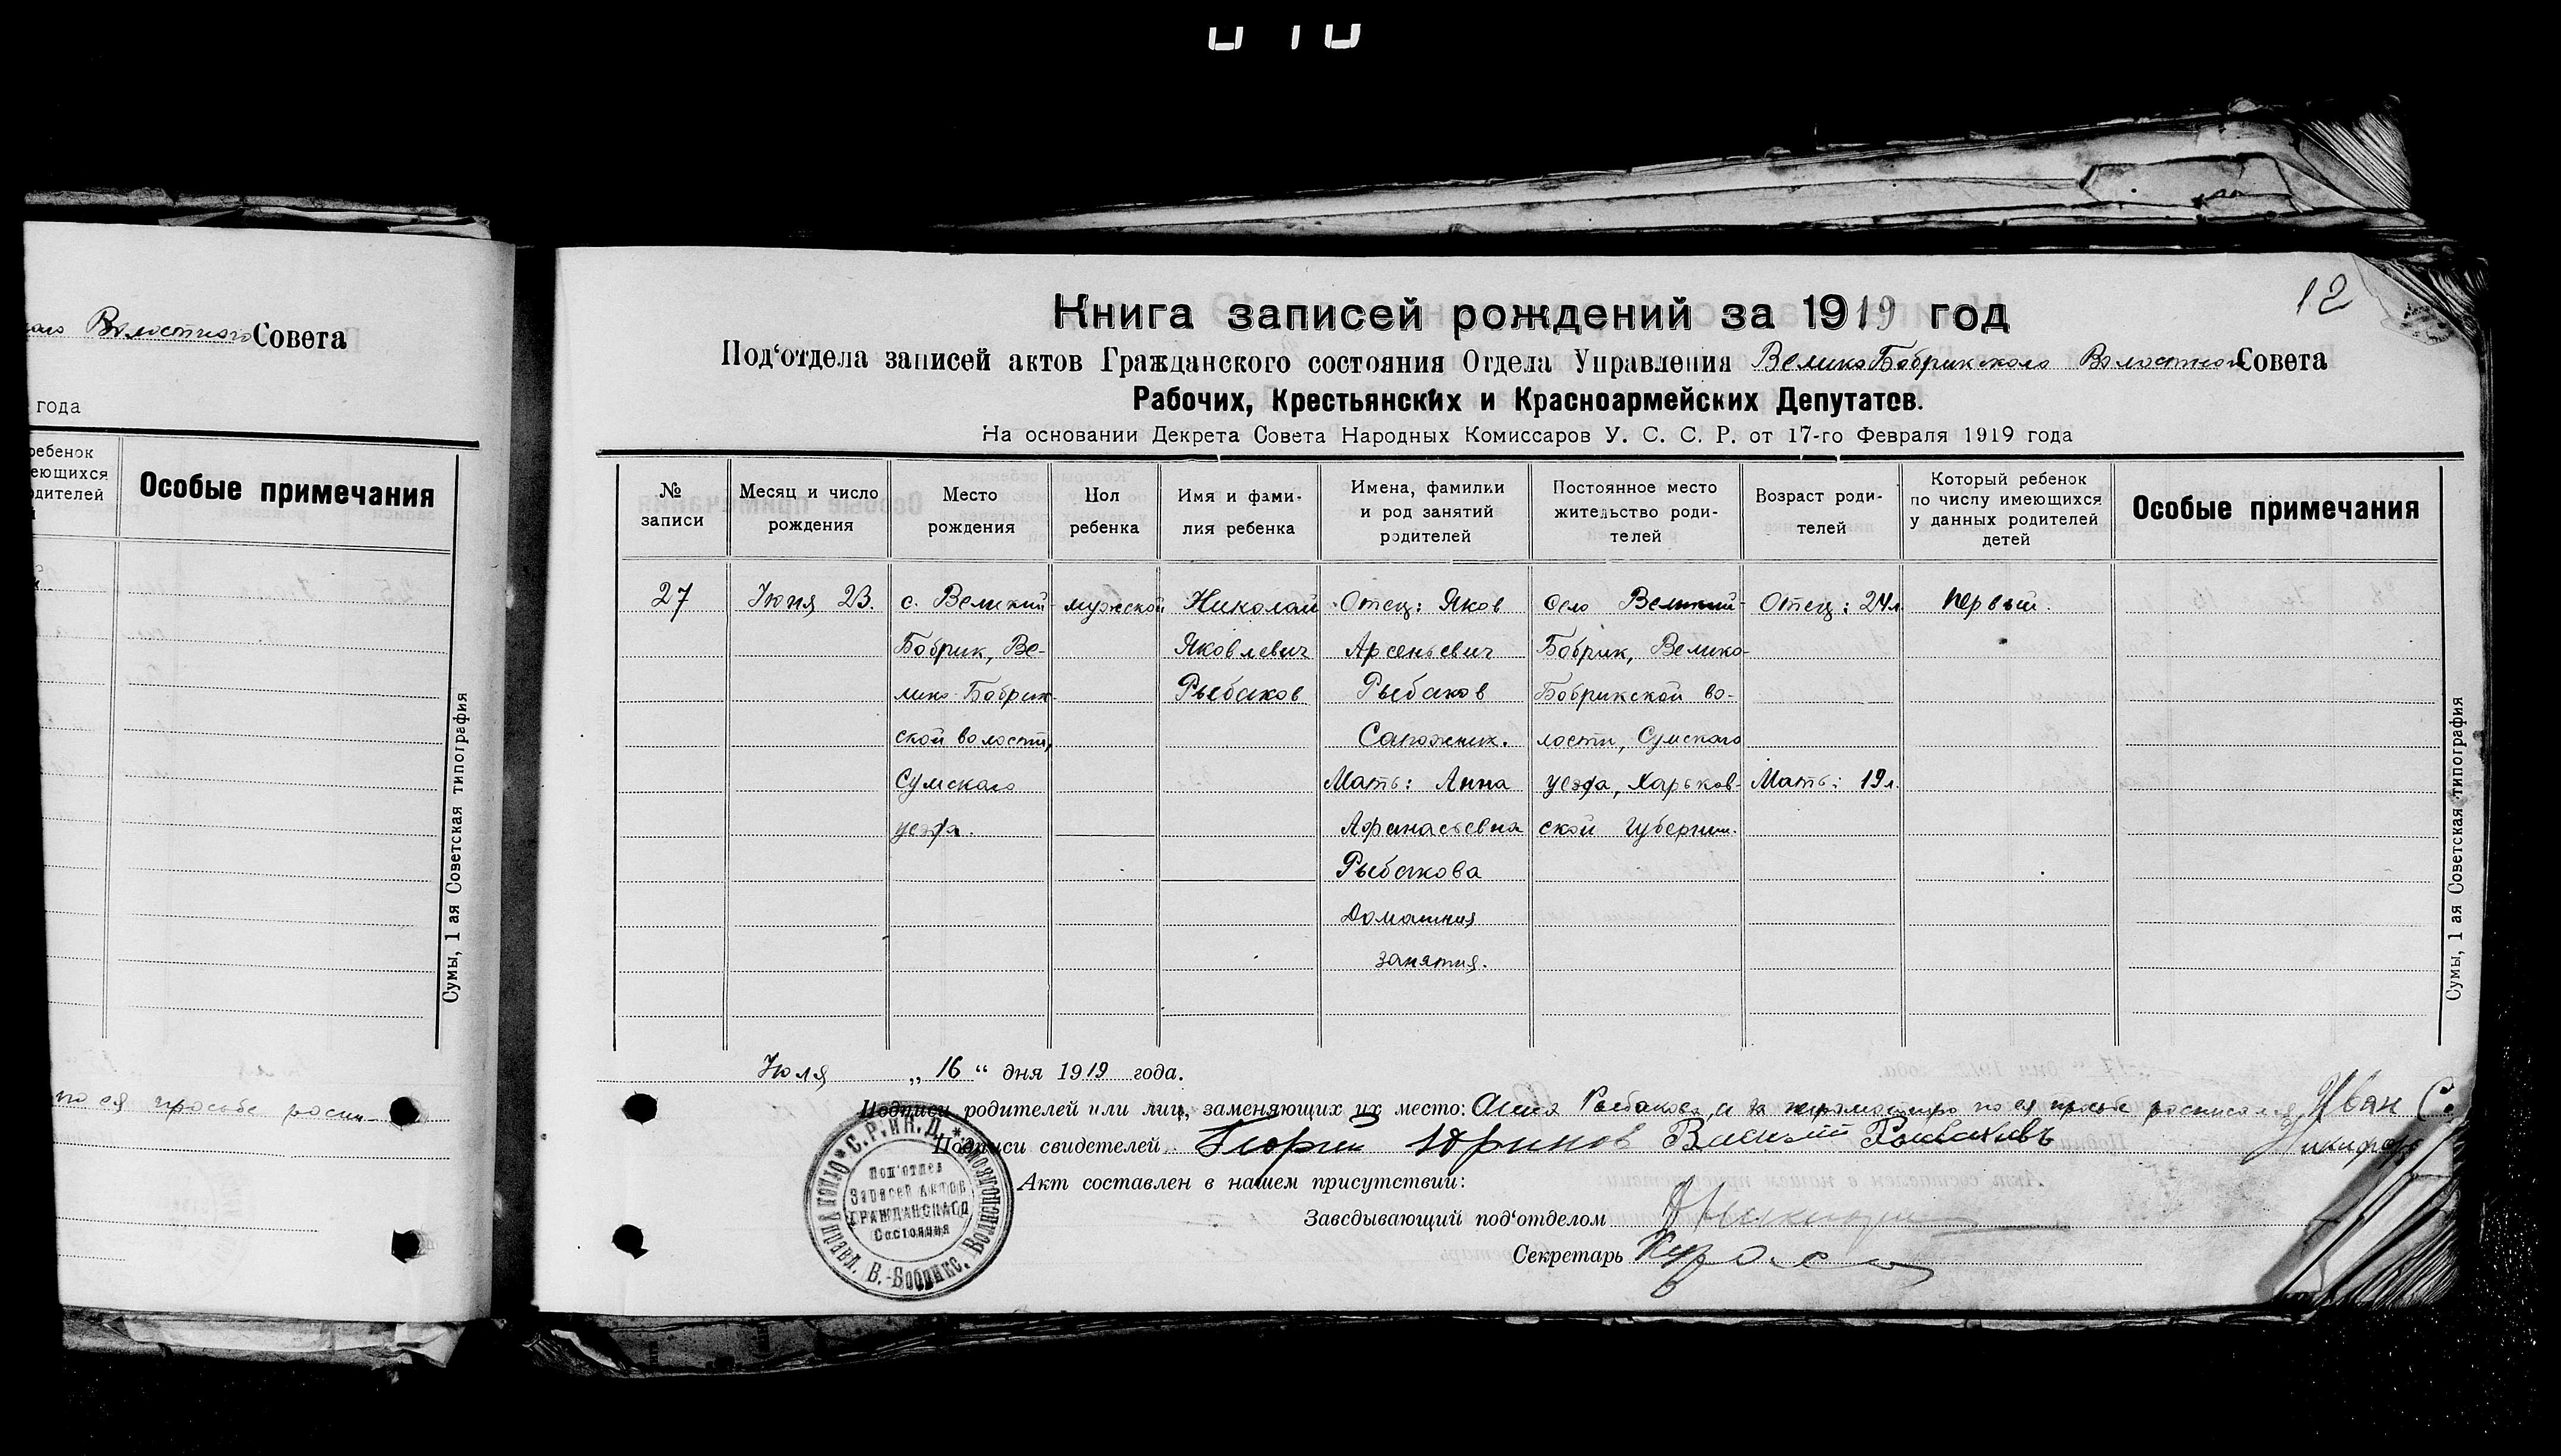 Волостного Совета
года
ребенок
еющихся
одителей
Особые примечания
Сумы, 1 ая Советская типография
по ея просьбе роспи-
12
Книга записей рождений за 1919 год
Под‘отдела записей актов Гражданского состояния Отдела Управления Велико Бобрикского Волостного Совета
Рабочих, Крестьянских и Красноармейских Депутатов.
На основании Декрета Совета Народных Комиссаров У. С. С. Р. от 17-го Февраля 1919 года
№
записи
Месяц и число
рождения
Место
рождения
Пол
ребенка
Имя и фами-
лия ребенка
Имена, фамилии
и род занятий
родителей
Постоянное место
жительство роди-
телей
Возраст роди-
телей
Который ребенок
по числу имеющихся
у данных родителей
детей
Особые примечания
27
Июня 23.
с. Великий-
Бобрик, Ве-
лико-Бобрик-
ской волости,
Сумского
уезда.
мужской
Николай
Яковлевич
Рыбаков
Отец: Яков
Арсеньевич
Рыбаков
Сапожник.
Мать: Анна
Афанасьевна
Рыбакова
Домашния
занятия.
Село Великий-
Бобрик, Велико-
Бобрикской во-
лости, Сумского
уезда, Харьков-
ской губернии.
Отец: 24л.
Мать: 19л.
Первый.
Сумы, 1 ая Советская типография
Июля „ 16 “ дня 1919 года.
Подписи родителей или лиц, заменяющих их место: Анна Рыбакова, а за неграмотную по ея просьбе росписался Иван С.
Подписи свидетелей Георгий Юринов Василий Рыбаковъ
Акт составлен в нашем присутствии:
Заведывающий под‘отделом
Секретарь
С.Р.и К.Д. * Волисполкома
Отдел Управл. В.-Бобрикс.
Под‘отдел
Записей Актов
Гражданскаго
Состояния